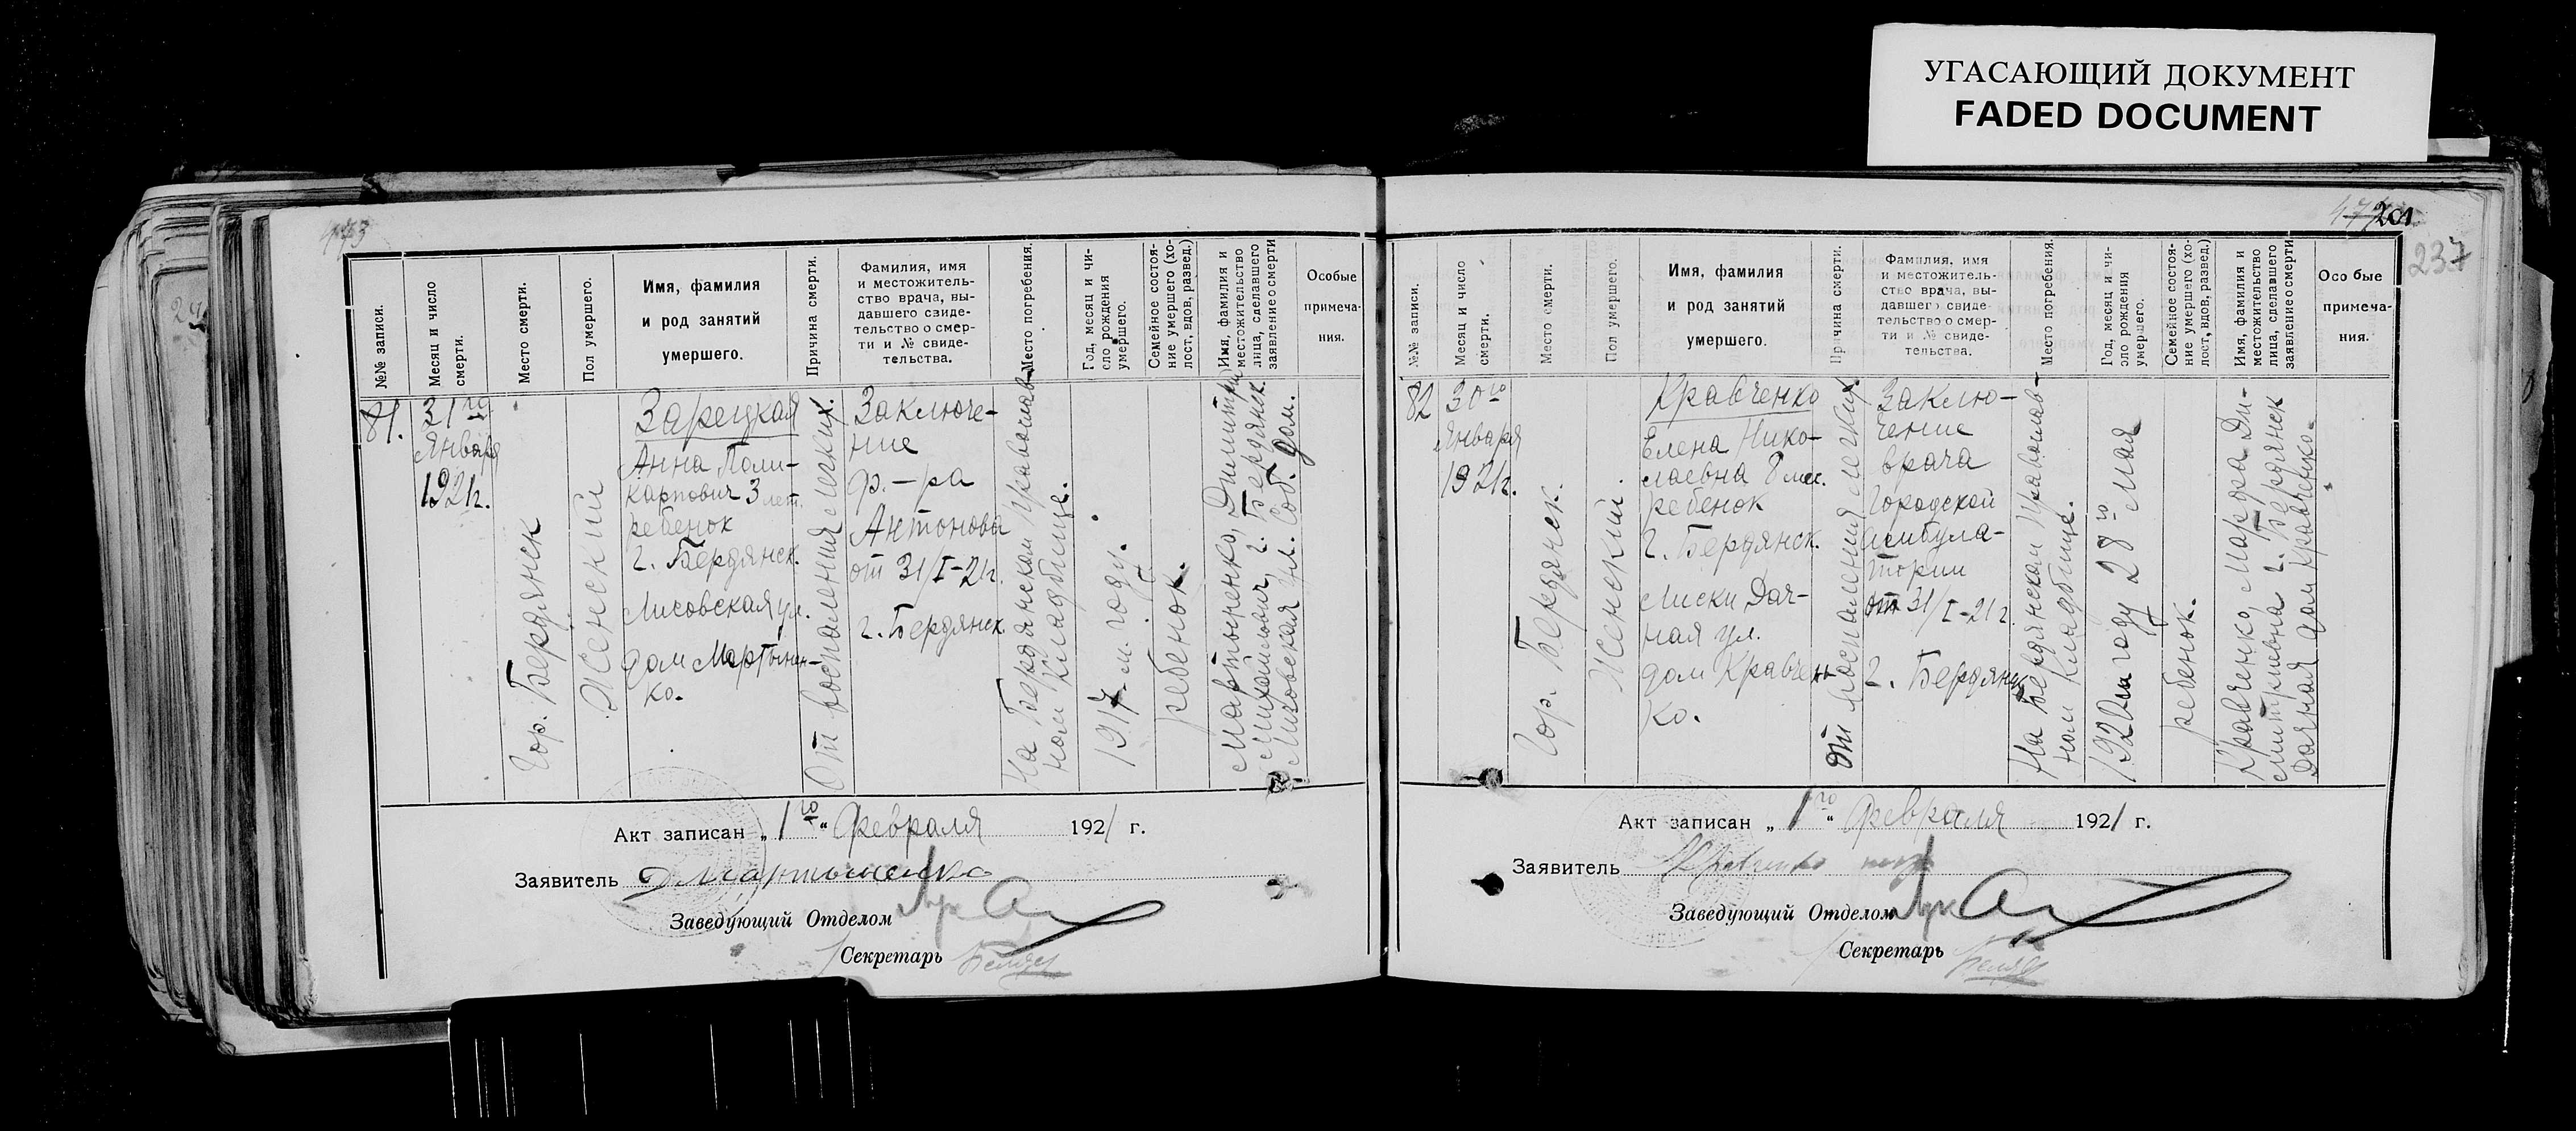 УГАСАЮЩИЙ ДОКУМЕНТ
FADED DOCUMENT
473
№№ записи.
Месяц и число
смерти.
Место смерти.
Пол умершего.
Имя, фамилия
и род занятий
умершего.
Причина смерти.
Фамилия, имя
и местожитель-
ство врача, вы-
давшего свиде-
тельство о смер-
ти и № свиде-
тельства.
Место погребения.
Год, месяц и чи-
сло рождения
умершего.
Семейное состоя-
ние умершего (хо-
лост, вдов, развед.)
Имя, фамилия и
местожительство
лица, сделавшего
заявление о смерти
Особые
примеча-
ния.
81.
31го
Января
1921г.
Гор. Бердянск
Женский
Зарецкая
Анна Поли-
карпович 3 лет.
ребенок
г. Бердянск.
Лисовская ул.
дом Мартынен-
ко.
От воспаления легких.
Заключе-
ние
ф.-ра
Антонова
от 31/I-21г.
г. Бердянск.
На Бердянском Православ-
ном кладбище.
1917-м году.
ребенок.
Мартыненко, Димитрий
Михайлович, г. Бердянск.
Лизовская ул. Соб. дом.
Акт записан „1го“ февраля 1921 г.
Заявитель Д Мартыненко
Заведующий Отделом
Секретарь
201
237
№№ записи.
Месяц и число
смерти.
Место смерти.
Пол умершего.
Имя, фамилия
и род занятий
умершего.
Причина смерти.
Фамилия, имя
и местожитель-
ство врача, вы-
давшего свиде-
тельство о смер-
ти и № свиде-
тельства.
Место погребения.
Год, месяц и чи-
сло рождения
умершего.
Семейное состоя-
ние умершего (хо-
лост, вдов, развед.)
Имя, фамилия и
местожительство
лица, сделавшего
заявление о смерти
Осо бые
примеча-
ния.
82
30го
Января
1921г.
Гор. Бердянск.
Женский.
Кравченко
Елена Нико-
лаевна 8 мес.
ребенок
г. Бердянск.
Лиски Дач-
ная ул.
дом Кравчен-
ко.
От воспаления легких.
Заклю-
чение
врача
Городской
амбула-
тории
от 31/I-21г.
г. Бердянск
На Бердянском Православ-
ном кладбище.
1920м году 28го Мая
ребенок.
Кравченко, Марфа Ди-
митриевна г. Бердянск
Дачная дом Кравченко.
Акт записан „1го“ февраля 1921 г.
Заявитель Кравченко
Заведующий Отделом
Секретарь